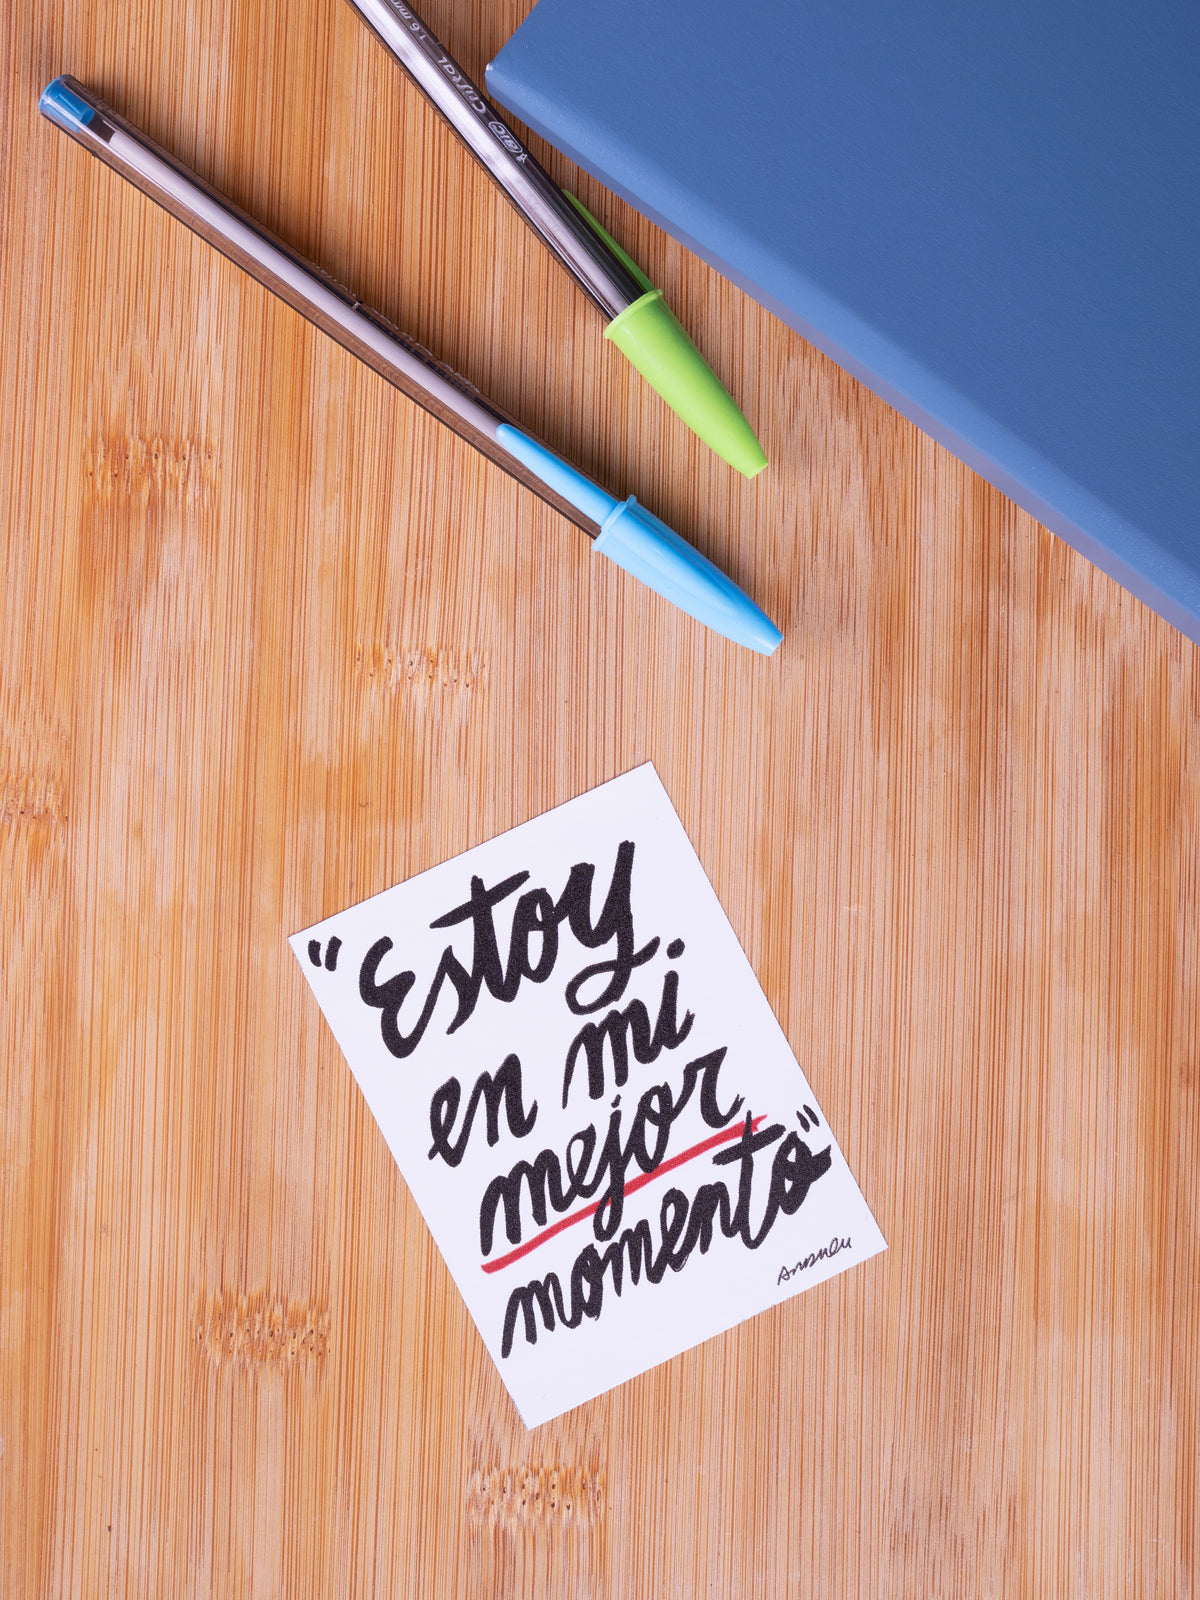 BIC Cristal 1.6 mm
“Estoy
en mi
mejor
momento”